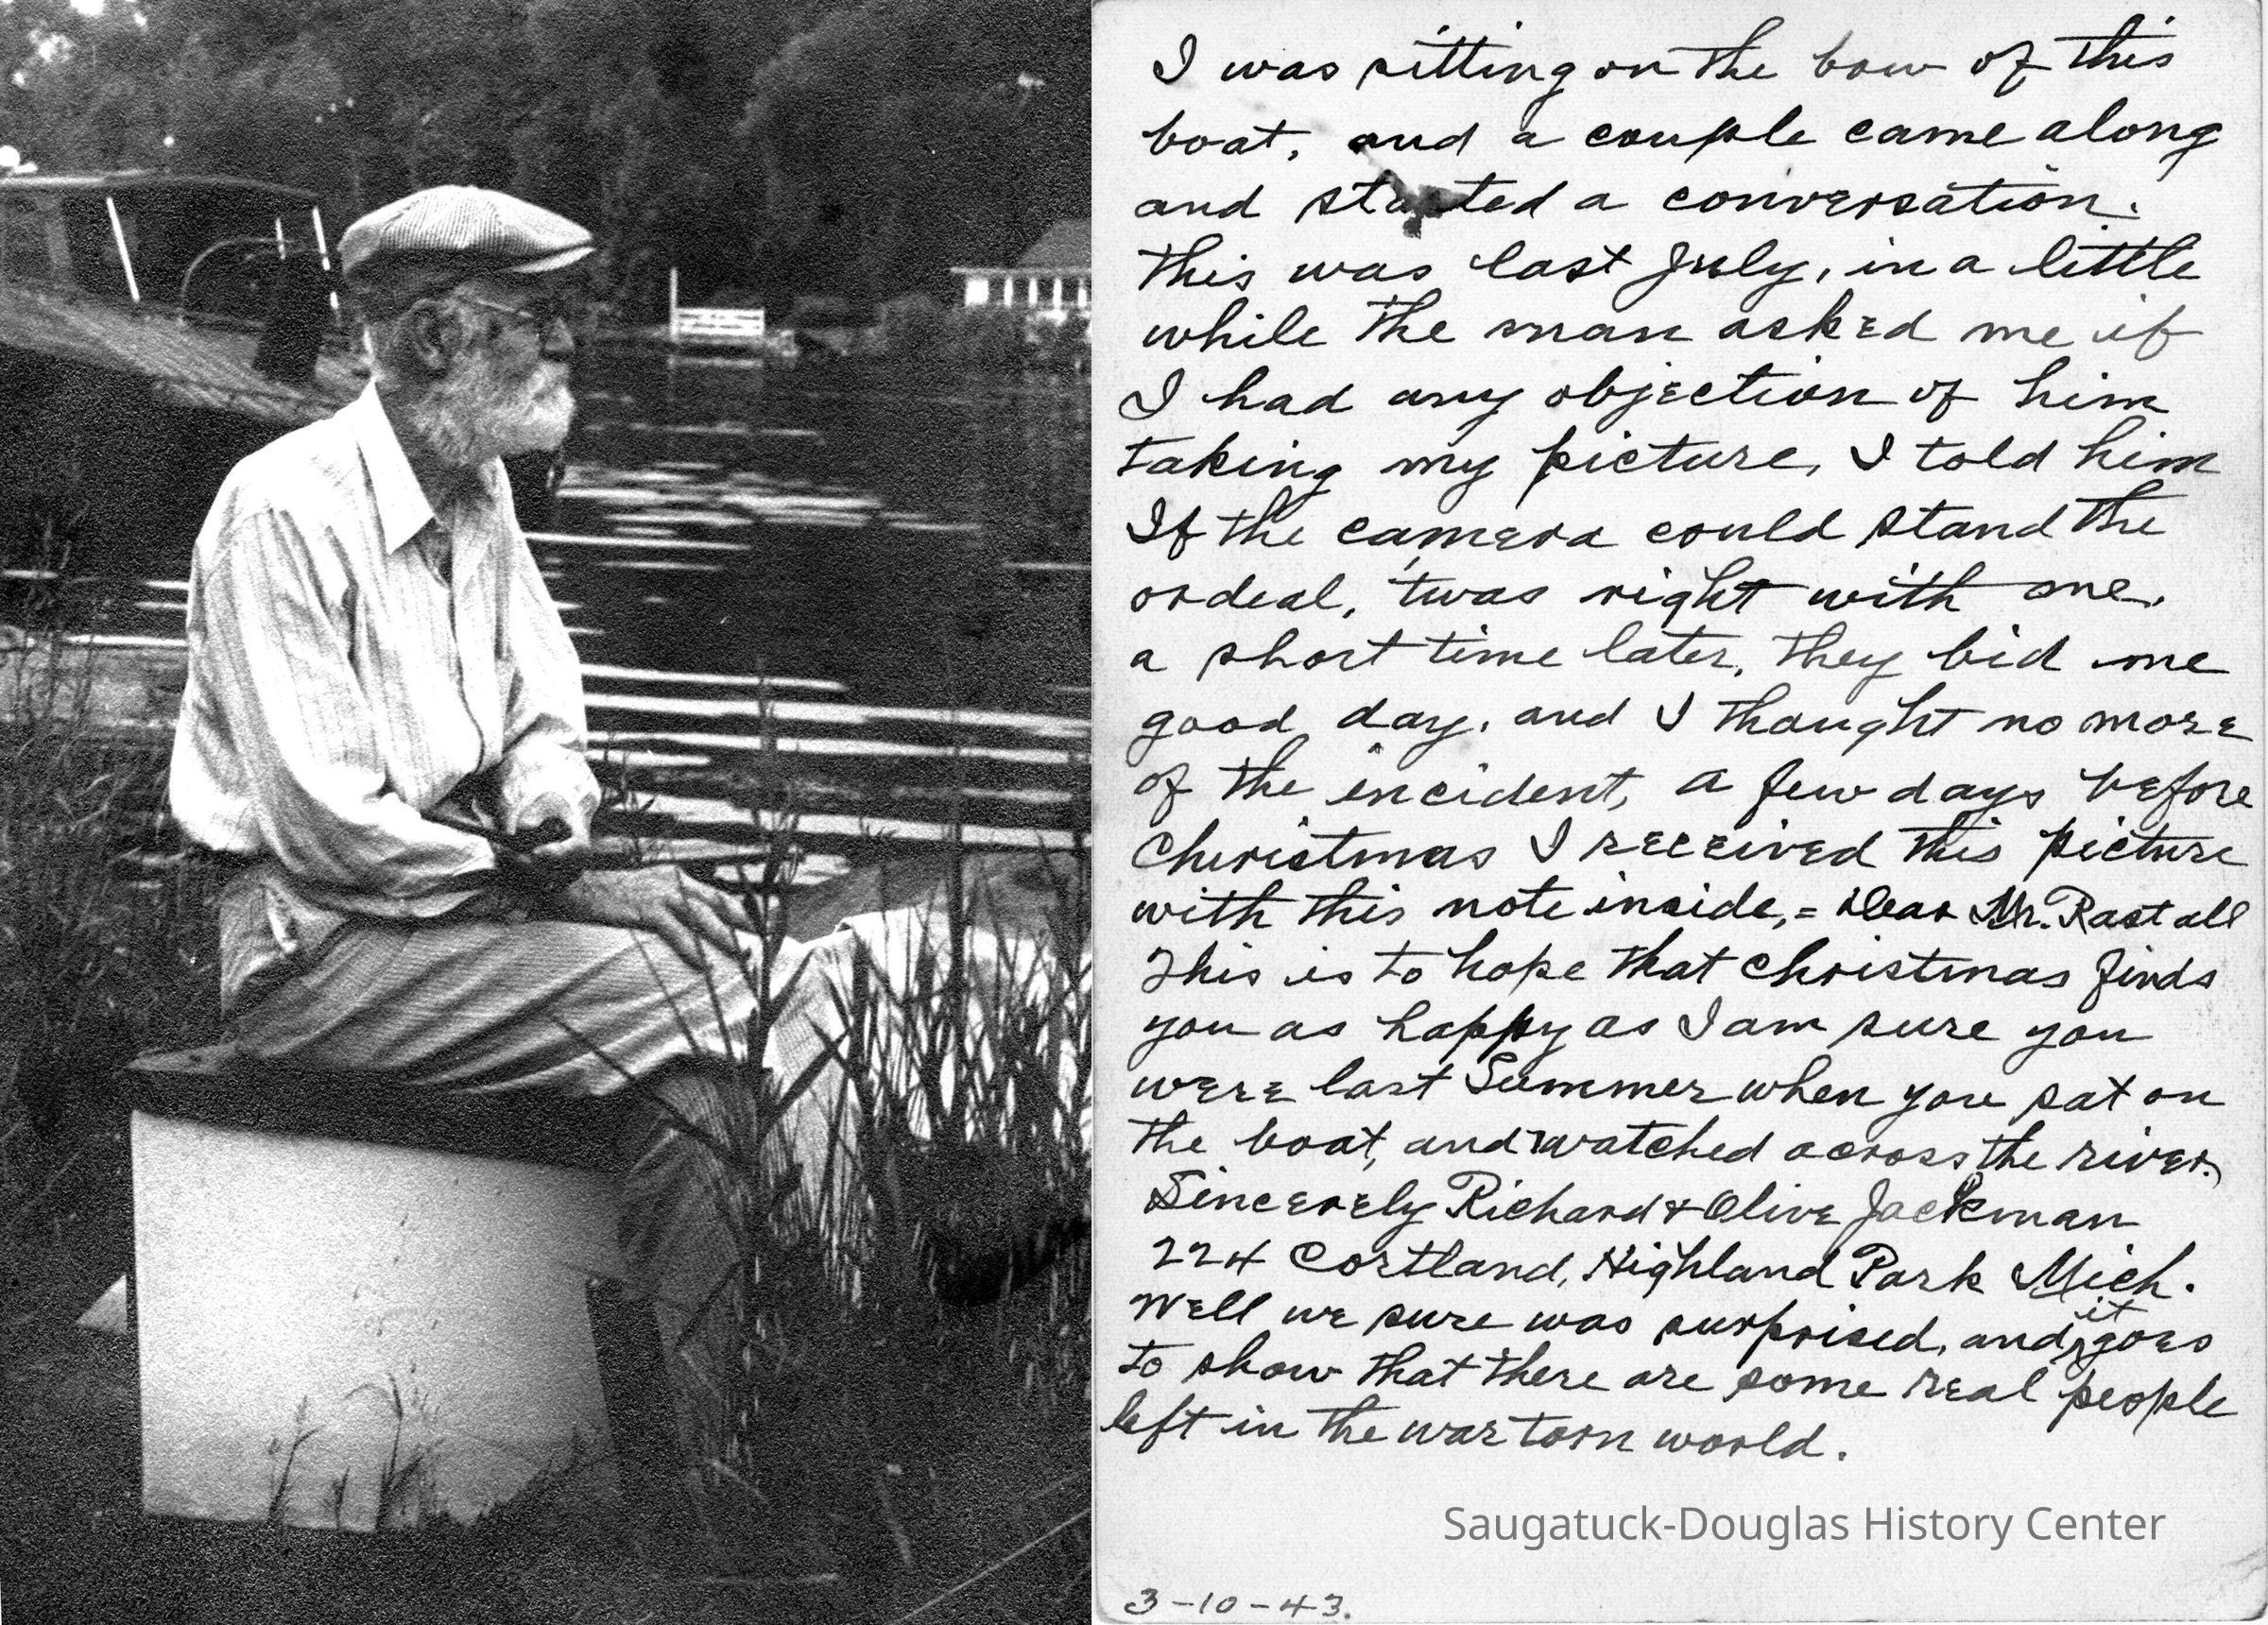 I was sitting on the bow of this
boat, and a couple came along
and started a conversation.
this was last July, in a little
while the man asked me if
I had any objection of him
taking my picture, I told him
If the camera could stand the
ordeal, 'twas right with me.
a short time later, they bid me
good day, and I thought no more
of the incident, a few days before
Christmas I received this picture
with this note inside,= Dear Mr. Rastall
This is to hope that Christmas finds
you as happy as I am sure you
were last Summer when you sat on
the boat, and watched across the river.
Sincerely Richard & Olive Jackman
224 Cortland, Highland Park Mich.
Well we sure was surprised, and it goes
to show that there are some real people
left in the war torn world.
Saugatuck-Douglas History Center
3-10-43.